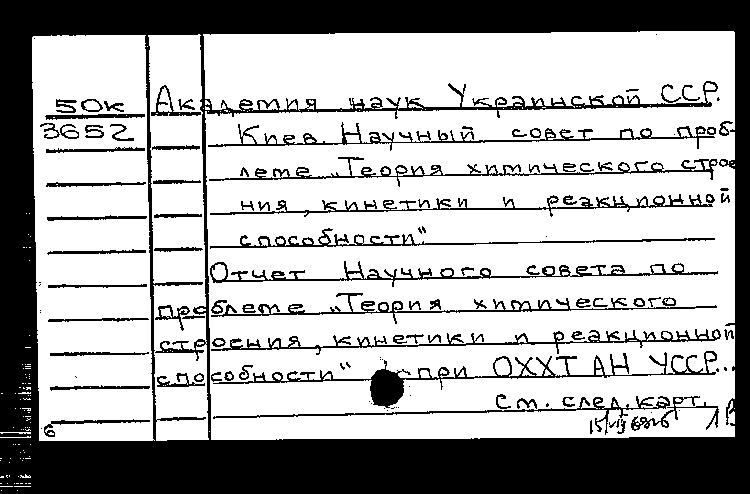 50к Академия наук Украинской ССР.
3652 Киев. Научный совет по проб-
леме „Теория химического строе
ния, кинетики и реакционной
способности“.
Отчет Научного совета по
проблеме „Теория химического
строения, кинетики и реакционной
способности“ при ОХХТ АН УССР...
См. след. карт.
6 1В